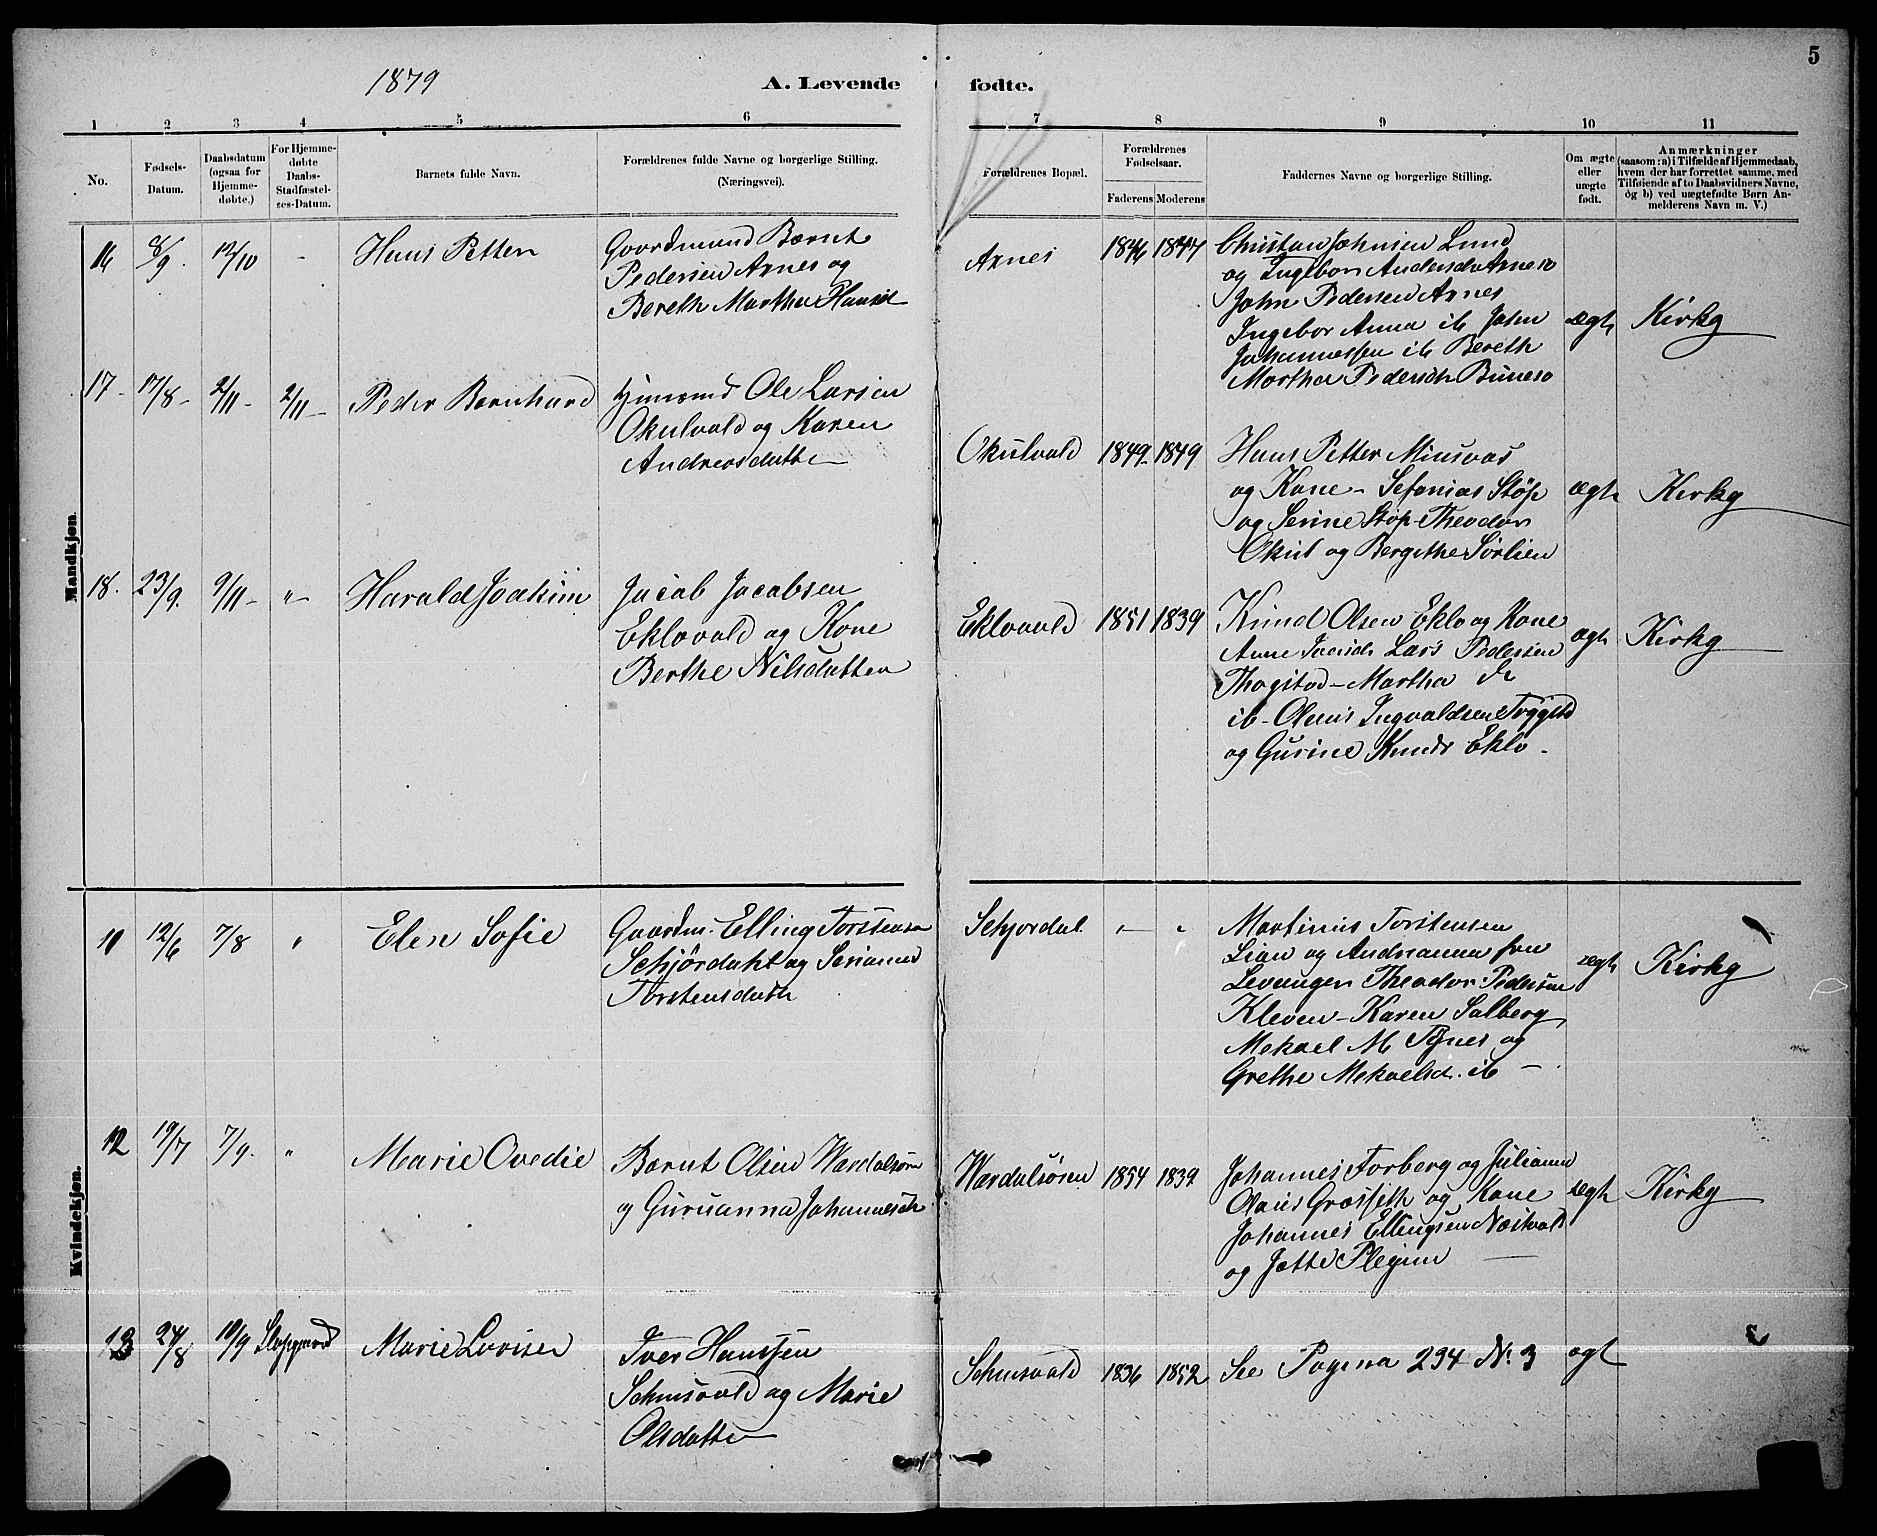 5
1879 A. Levende fødte.
1 2 3 4 5 6 7 8 9 10 11
No.
Fødsels-
Datum.
Daabsdatum
(ogsaa for
Hjemme-
døbte.)
For Hjemme-
døbte
Daabs-
Stadfæstel-
ses-Datum.
Barnets fulde Navn.
Forældrenes fulde Navne og borgerlige Stilling.
(Næringsvei).
Forældrenes Bopæl.
Forældrenes
Fødselsaar.
Faderens Moderens
Faddernes Navne og borgerlige Stilling.
Om ægte
eller
uægte
født.
Anmærkninger
(saasom: a) i Tilfælde af Hjemmedaab,
hvem der har forrettet samme, med
Tilføiende af to Daabsvidners Navne,
og b) ved uægtefødte Børn An-
melderens Navn m. V.)
Mandkjøn.
16 8/9. 12/10 - Hans Petter
Gaardmand Bærnt
Pedersen Arnes og
Bereth Martha Hansd
Arnes 1846 1847
Christan Johnsen Lund
og Ingebor Andersdr Arnes
John Pedersen Arnes
Ingebor Anna ib John
Johannessen ib Bereth
Martha Pedersdr
ægt Kirkg
17- 17/8- 2/11- 2/11- Peder Bernhard
Ole Larsen
Okulvald og Karen
Andreasdatte
Okulvald 1849- 1849
Hans Petter Minsvas
og Kone - Sefanias Støp
og Serine Støp - Theodor
Okul og Bergithe Sørlien
ægt Kirkg
18. 23/9. 9/11- " Harald Joakim
Jacob Jacobsen
Eklovald og Kone
Berthe Nilsdatter
Eklovald 1851 1839
Knud Olsen Eklo og Kone
Anne Lars Pedersen
Martha
ib - Olaus Ingvaldsen
og Gurine Knudr Eklo -
ægt Kirkg
Kvindekjøn.
11 12/6 7/8 " Elen Sofie
Gaardm. Elling Torstensen
Schjördahl og Serianna
Torstensdatr
Schjordal - "
Martinus Torstensen
Lian og Andreanna fra
Levanger Theodor Pedersen
Kleven - Karen Salberg
Mekael M. Tynes og
Grethe Mekaelsd. ib -
ægt Kirkg
12 19/7 7/9. " Marie Ovedie
Bærnt Olsen Værdalsøren
og Guruanna Johannesdr
Værdalsøren 1854 1839
Johannes Forberg og Julianna
Olaus Græsseth og Kone
Johannes Ellingsen Næstvold
og Jette Plejm
ægt Kirkg
13 24/8 10/9 Marie Lovise
Iver Hanssen
Schnsvald og Marie
Olsdatte
Schnsvald 1836 1852 See Pagina 234 N. 3 ægt